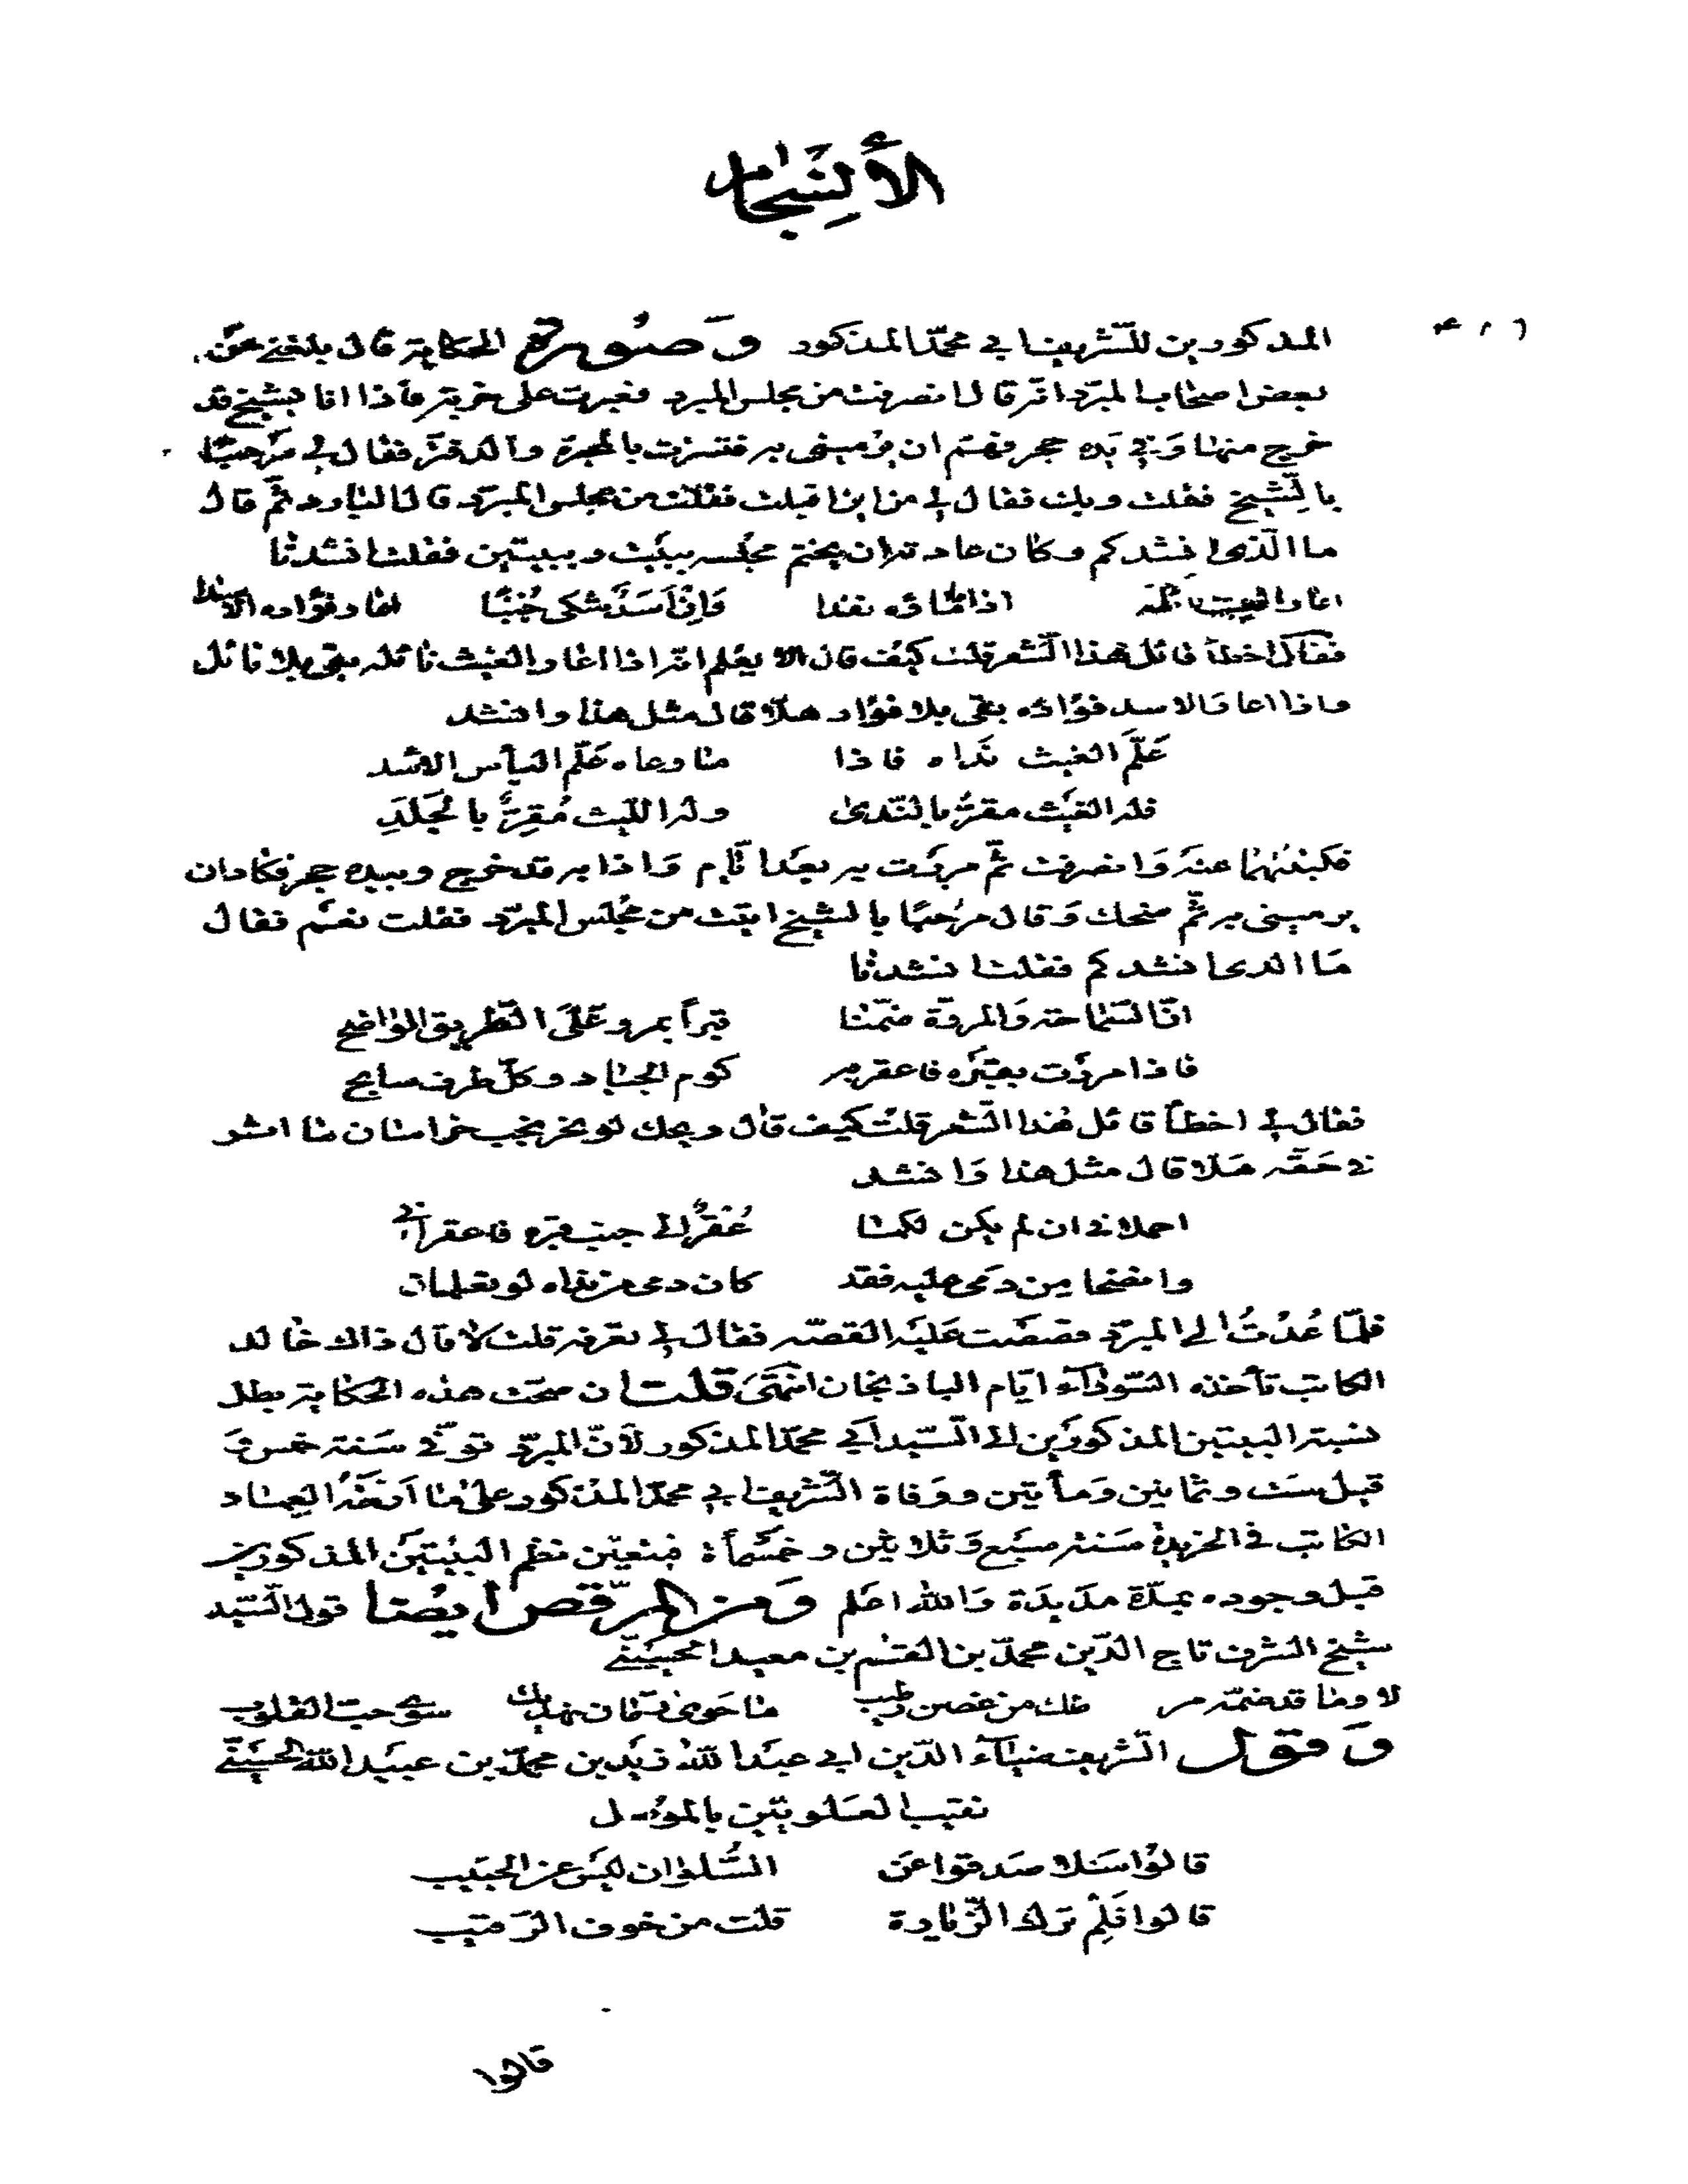 الأنسجام
المذكورين للشريف ابي محمد المذكور وَصُورة الحكاية قال بلغني عن
بعض اصحاب المبرّد انه قال انصرفت من مجلس المبرد فعبرت على خربة فاذا انا بشيخ قد
خرج منها وَفي يَده حجر فهمّ ان يرميني به فتسترت بالمحبرة والدفتر فقال لي مرحبًا
بالشيخ فقلت وبك فقال لي من اين اقبلت فقلت من مجلس المبرّد قال البارد ثمّ قال
ما الّذي انشدكم وكان عادته ان يختم مجلسه ببيت وببيتين فقلت انشدنا
اعار الغيث نائله اذا ما مآؤه نفدا وَاِن اَسَد شكى جُبنًا اعار فؤاده الاسدا
فقال اخطأ قائل هذا الشعر قلت كيف قال الا يعلم انّه اذا اعار الغيث نائله بقي بلا نائل
واذا اعار الاسد فؤاده بقى بلا فؤاد هلّا قال مثل هذا وانشد
عَلّمَ الغيث نداه فاذا ما وعاه عَلّم البأس الاسد
فله الغيث مقرٌّ بالندى وله الليث مُقِرٌّ بالجَلَدِ
فكتبتهما عنه وَانصرفت ثمّ مررت به بعد ايّام وَاذا به قد خرج وبيده حجر فكاد ان
يرميني به ثمّ ضحك وَقال مرحبًا بالشيخ اتيت من مجلس المبرّد فقلت نعم فقال
مَا الذي انشدكم فقلت انشدنا
انّ السّماحة وَالمروّة ضمّنا قبراً بمرو عَلَى الطّريق الواضح
فاذا مررْت بقبره فاعقر به كوم الجياد وكلّ طرف سابح
فقال لي اخطأ قائل هذا الشعر قلت كيف قال ويحك لو نحر نجب خراسان ما اثر
في حَقّه هَلّا قال مثل هذا وَانشد
احملاني ان لم يكن لكما عُقرٌ الى جنب قبره فاعقراني
وانضحا من دَمي عليه فقد كان دمي من نداه لو تعلمان
فلمّا عُدْتُ الى المبرّد قصصْت عَليْه القصّه فقال لي تعرفه قلت لا قال ذاك خالد
الكاتب تأخذه السّودآء ايّام الباذنجان انتهى قلت ان صحّت هذه الحكاية بطل
نسبة البيتين المذكورَين الى السّيد ابي محمّد المذكور لأنّ المبرّد توفّي سَنة خمس وَ
قيل ستّ وثمانين وَمأتين ووفاة الشّريف ابي محمّد المذكور على ما اَرّخَهُ العِماد
الكاتب في الخريدة سَنة سَبع وَثلاثين وخمسمأة فتعيّن نظم البيتين المذكورين
قبل وجوده بمدّة مدَيدَة وَالله اعلم وَمن المرقّص ايضا قول السّيد
شيخ الشرف تاج الدّين محمّد بن القسم بن معيد الحسيني
لا وما قد ضمّه من عطفك من غصن رطيب ما حوى رمّان نهديك سوى حبّ القلوب
وَقول الشّريف ضيآء الدّين ابي عبد الله زيد بن محمّد بن عبيد الله الحسيني
نقيب العلويّين بالموصل
قالوا سَلا صَدقوا عن السُّلوان ليسَ عن الحبَيب
قالوا فَلِم ترك الزّيارة قلت من خوف الرّقيب
قالوا